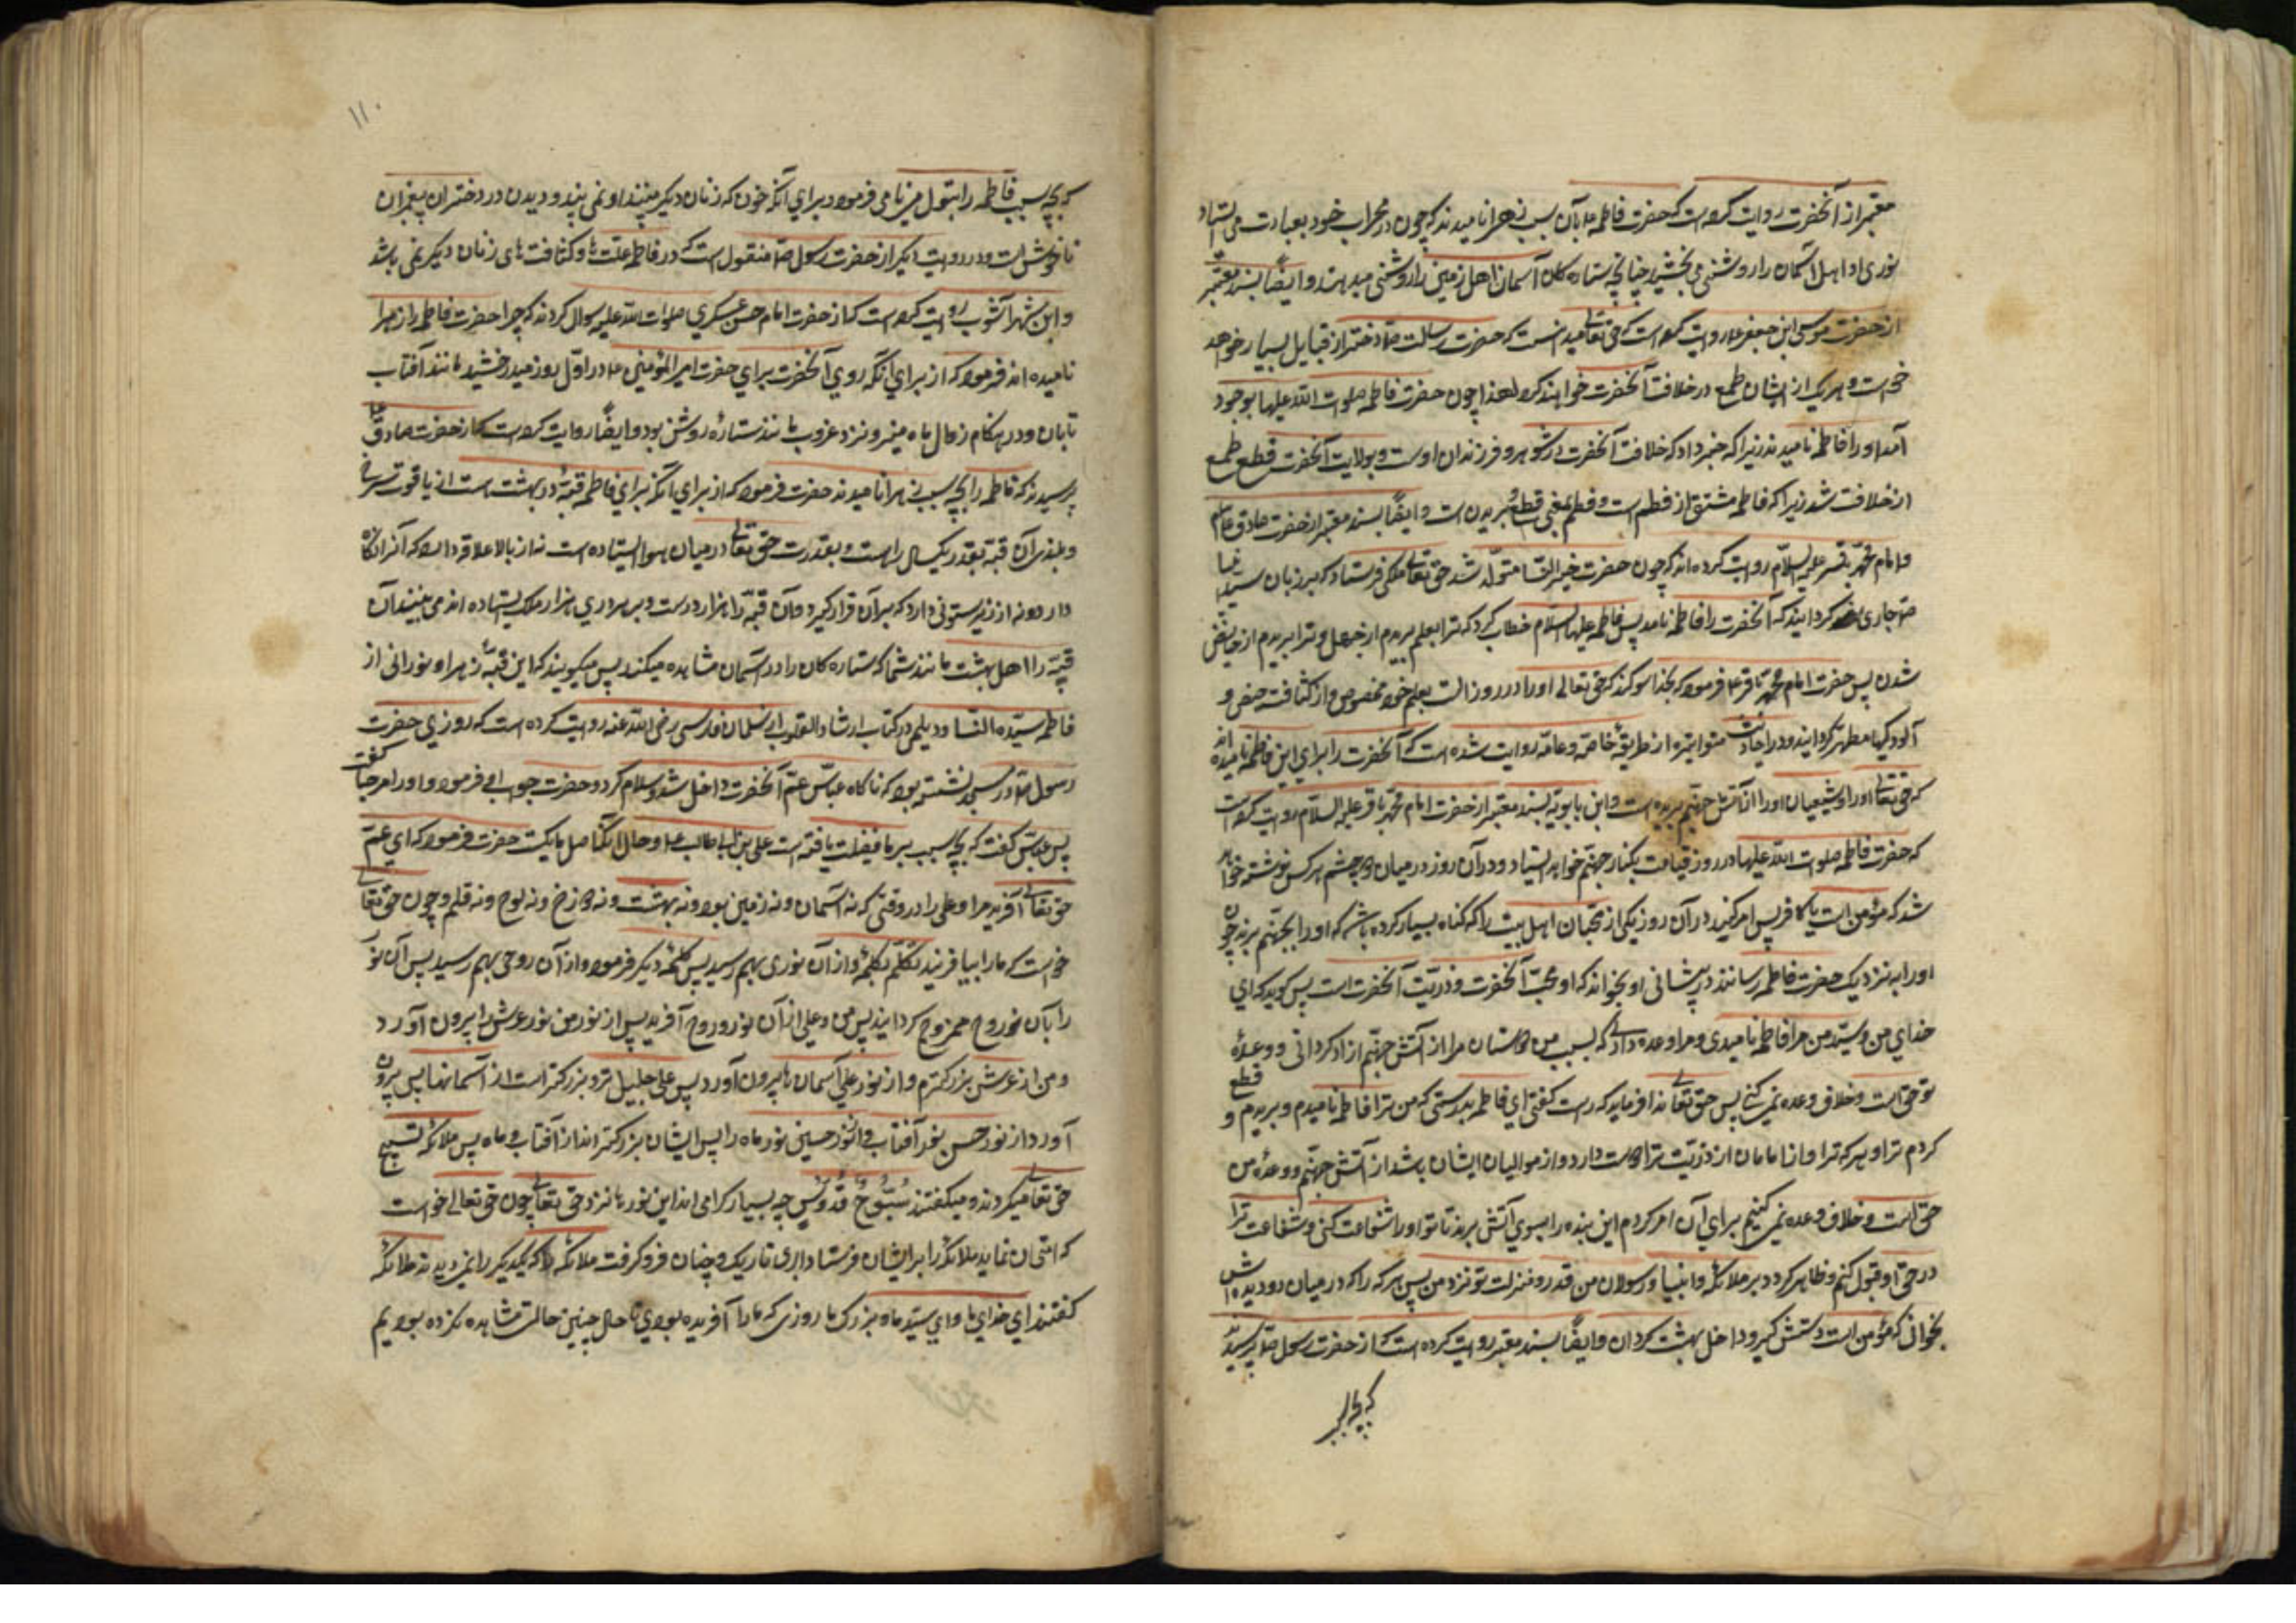 معتبر از آنحضرت روایت کرده است که حضرت فاطمه ع را بآن سبب زهرا نامیدند که چون در محراب خود بعبادت می ایستاد
نوری او اهل آسمان را روشنی می بخشید چنانچه ستاره کان آسمان اهل زمین را روشنی میدهند و ایضاً بسند معتبر
از حضرت موسی ابن جعفر ع روایت کرده است که حق تعالی میدانست که حضرت رسالت ص دختر از قبایل بسیار خواهد
خواست و هریک از ایشان طمع در خلافت آنحضرت خواهند کرد لهذا چون حضرت فاطمه صلوات الله علیها بوجود
آمد او را فاطمه نامیدند زیرا که خبر داد که خلافت آنحضرت در شوهر و فرزندان اوست و بولایت آنحضرت قطع طمع
از خلافت شد زیرا که فاطمه مشتق از فطم است و فطم بمعنی قطع و بریدن است و ایضاً بسند معتبر از حضرت صادق علیه السلام
و امام محمد باقر علیه السلام روایت کرده اند که چون حضرت خیر النسا متولد شد حق تعالی ملکی فرستاد که بر زبان سید انبیا
ص جاری گردانید که آنحضرت را فاطمه نامد پس فاطمه علیها السلام خطاب کرد که ترا بعلم بریدم از جهل و ترا بریدم از حایض
شدن پس حضرت امام محمد باقر ع فرمود که بخدا سوکند که حق تعالی او را در روز الست بعلم خود مخصوص و از کثافت حیض و
آلودکیها مطهر کردانید و در احادیث متواتره از طریقهٔ خاصه و عامه روایت شده است که آنحضرت را برای این فاطمه نامیده اند
که حق تعالی او را و شیعیان او را از آتش جهنم بریده است و ابن بابویه بسند معتبر از حضرت امام محمد باقر علیه السلام روایت کرده است
که حضرت فاطمه صلوات الله علیها در روز قیامت بکنار جهنم خواهد ایستاد و در آن روز در میان دو چشم هرکس نوشته خواهد
شد که مؤمن است یا کافر پس امر کنند در آن روز یکی از محبان اهل بیت را که کناه بسیار کرده باشد که او را بجهنم برند چون
او را به نزدیک حضرت فاطمه رسانند در پیشانی او بخواند که او محب آنحضرت و ذریت آنحضرت است پس کوید که ای
خدای من و سید من مرا فاطمه نامیدی و مرا وعده دادی که بسبب من دوستان مرا از آتش جهنم ازاد کردانی و وعدهٔ
تو حق است و خلاف وعده نمی کنی پس حق تعالی ندا فرماید که راست کفتی ای فاطمه بدرستی که من ترا فاطمه نامیدم و بریدم و قطع
کردم ترا و هر که ترا و از امامان از ذریت ترا دوست دارد و از موالیان ایشان باشد از آتش جهنم و وعدهٔ من
حق است و خلاف وعده نمی کنیم برای آن امر کردم این بنده را بسوی آتش برند تا تو او را شفاعت کنی و شفاعت ترا
در حق او قبول کنم و ظاهر کردد بر ملائکه و انبیا و رسولان من قدر و منزلت تو نزد من پس هر که را که در میان دو دیده اش
بخوانی که مؤمن است دستش کیر و داخل بهشت کردان و ایضاً بسند معتبر روایت کرده است که از حضرت رسول ص پرسیدند
که بچه
۱۱۰
که بچه سبب فاطمه را بتول می نامی فرمود برای آنکه خون که زنان دیکر میبینند او نمی بیند و دیدن در دختران پیغمبران
ناخوش است و در روایت دیکر از حضرت رسول ص منقول است که در فاطمه علت ها و کثافت های زنان دیکر نمی باشد
و ابن شهر آشوب روایت کرده است که از حضرت امام حسن عسکری صلوات الله علیه سوال کردند که چرا حضرت فاطمه را زهرا
نامیده اند فرمود که از برای آنکه روی آنحضرت برای حضرت امیر المؤمنین ع در اول روز میدرخشید مانند آفتاب
تابان و در هنکام زوال ماه منیر و نزد غروب مانند ستارهٔ روشن بود و ایضاً روایت کرده است که از حضرت صادق ع
پرسیدند که فاطمه را بچه سبب زهرا نامیدند حضرت فرمود که از برای آنکه برای فاطمه قبهٔ در بهشت است از یاقوت سرخ
و بلندی آن قبه بقدر یکساله راه است و بقدرت حق تعالی در میان هوا ایستاده است نه از بالا علاقه دارد که آنرا نکاه
دارد و نه از زیر ستونی دارد که بر آن قرار کیرد و آن قبه را هزار در است و بر هر دری هزار ملک ایستاده اند می بینند آن
قبه را اهل بهشت مانند شما که ستاره کان را در آسمان مشاهده میکنید پس میکویند که این قبهٔ زهرا و نورانی از
فاطمه سیده النسا و دیلمی در کتاب ارشاد القلوب از سلمان فارسی رضی الله عنه روایت کرده است که روزی حضرت
رسول ص در مسجد نشسته بود که ناکاه عباس عم آنحضرت داخل شد و سلام کرد و حضرت جواب او فرمود و او را مرحبا کفت
پس عباس کفت که بچه سبب بر ما فضیلت یافته است علی بن ابیطالب ع و حال آنکه اصل ما یکیست حضرت فرمود که ای عم
حق تعالی آفرید مرا و علی را در وقتی که نه آسمان و نه زمین بود و نه بهشت و نه دوزخ و نه لوح و نه قلم و چون حق تعالی
خواست که ما را بیافریند تکلم بکلمهٔ و از آن نوری بهم رسید پس کلمهٔ دیکر فرمود و از آن روحی بهم رسید پس آن نور
را بآن روح ممزوج کردانید پس من و علی از آن نور و روح آفرید پس از نور من نور عرش را بیرون آورد
و من از عرش بزرکترم و از نور علی آسمان ها بیرون آورد پس علی جلیل تر و بزرکتر است از آسمانها پس بیرون
آورد از نور حسن نور آفتاب و از نور حسین نور ماه را پس ایشان بزرکتر اند از آفتاب و ماه پس ملائکه تسبیح
حق تعالی میکردند و میکفتند سُبُّوحٌ قُدُّوسٌ چه بسیار کرامی اند این نورها نزد حق تعالی چون حق تعالی خواست
که امتحان نماید ملائکه را بر ایشان فرستاد ابری تاریک و چنان فرو کرفت ملائکه را که یکدیکر را نمی دیدند ملائکه
کفتند ای خدای ما و ای سید ما و بزرک ما روزی که ما را آفریده بودی تا حال چنین حالت مشاهده نکرده بودیم